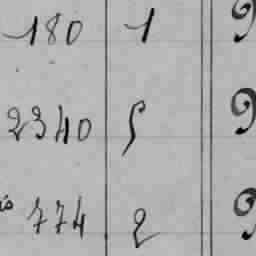 180 1 9
2340 5 9
774 2 9